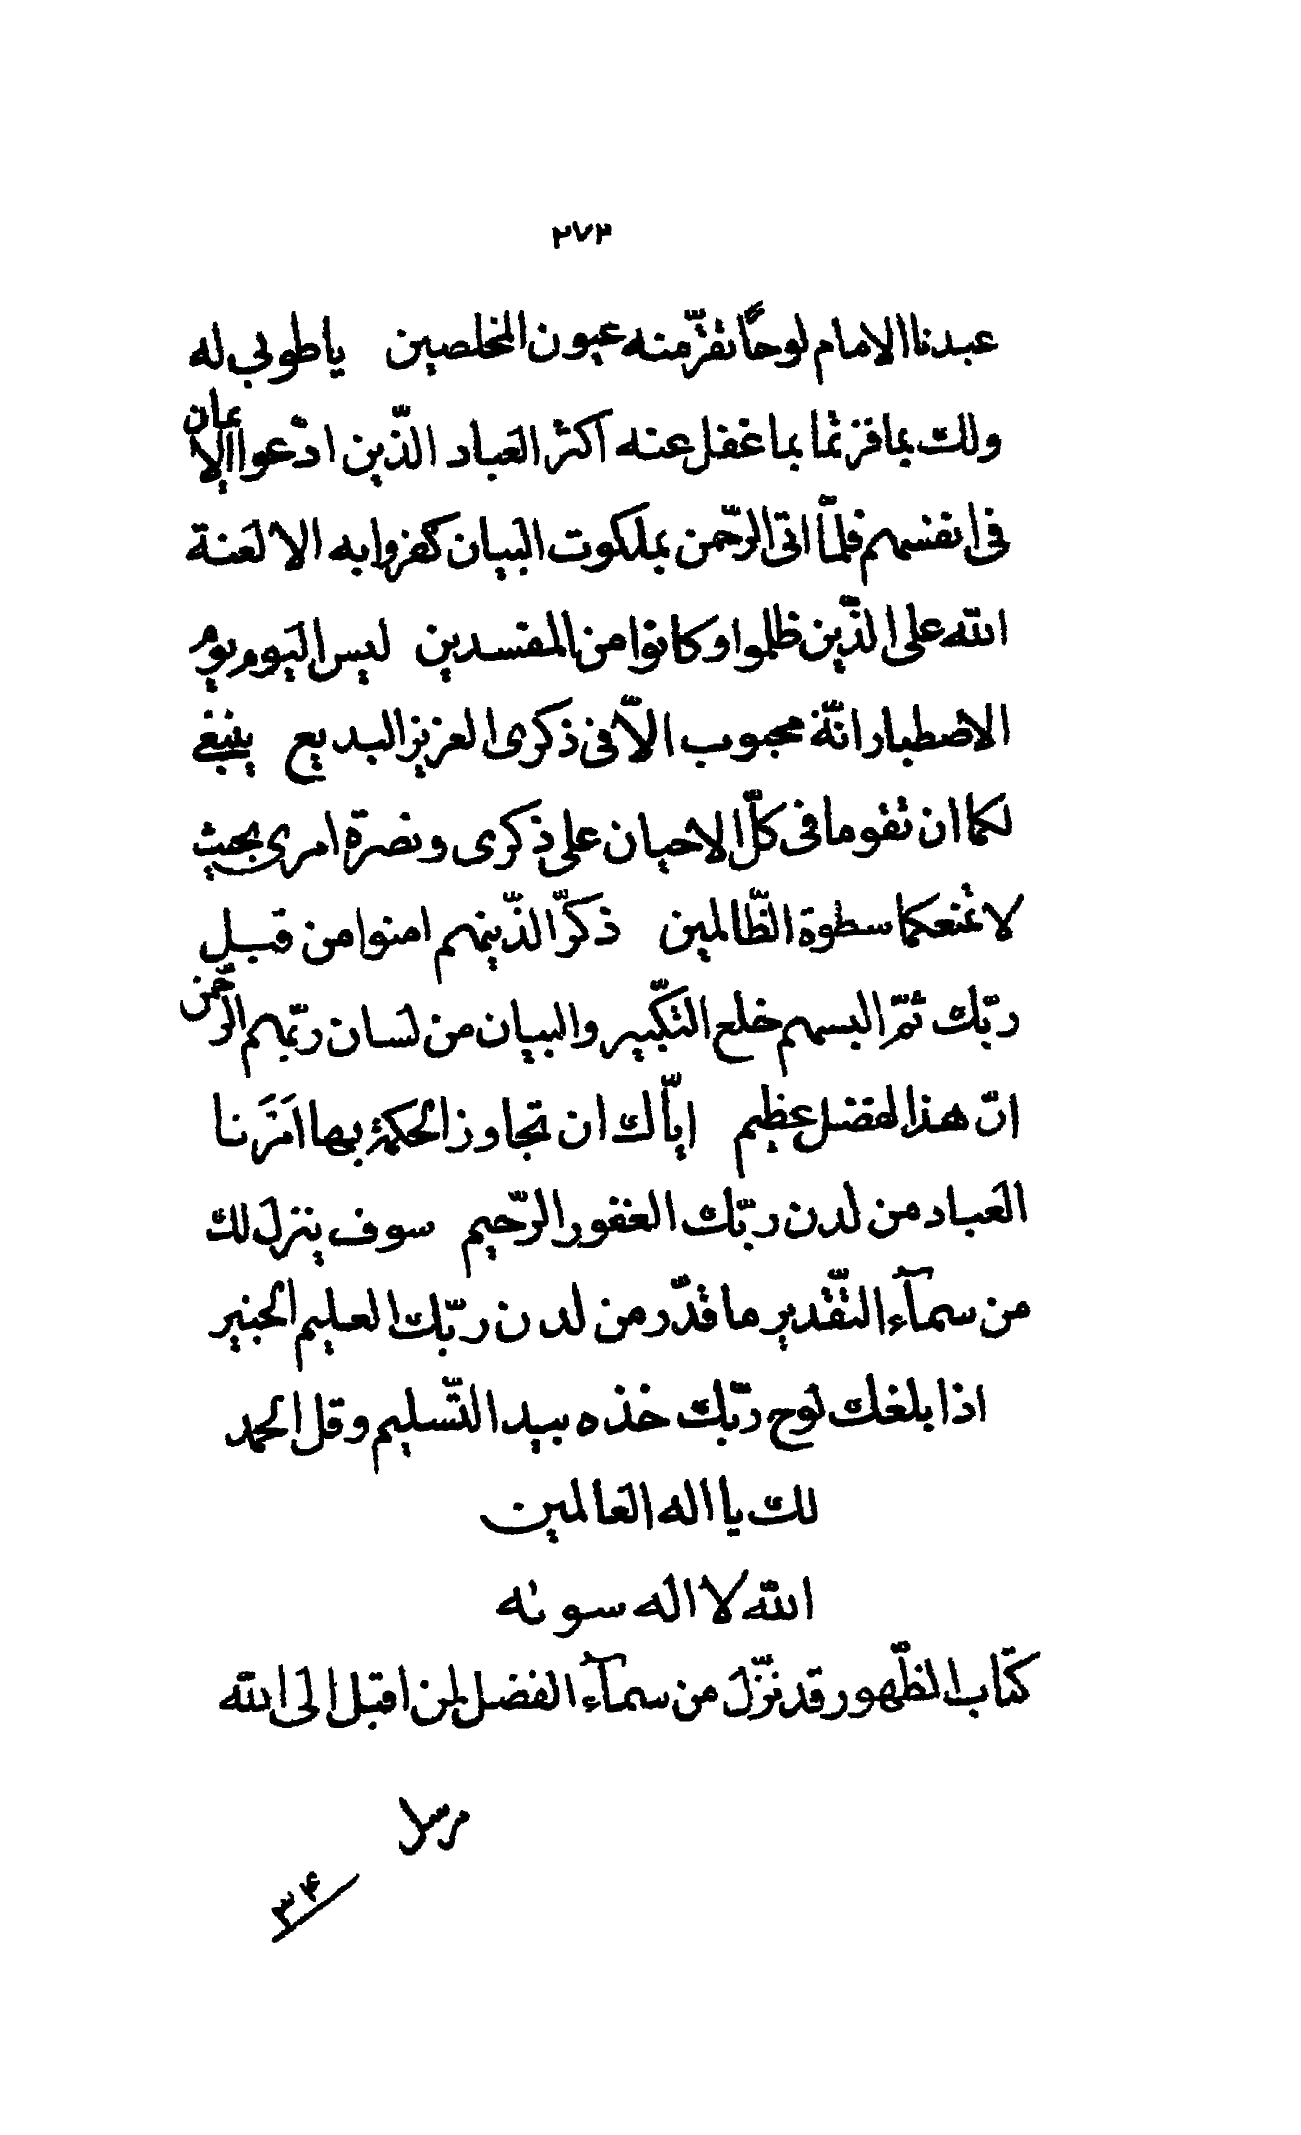 ٢٧٣
عبدنا الامام لوحًا تقرّ منه عيون المخلصين يا طوبى له
ولك بما فزتما بما غفل عنه اكثر العباد الّذين ادّعوا الايمان
فى انفسهم فلمّا اتى الرّحمن بملكوت البيان كفروا به الا لعنة
الله على الّذين ظلموا وكانوا من المفسدين ليس اليوم يوم
الاصطبار انّه محبوب الّا فى ذكرى العزيز البديع ينبغى
لكما ان تقوما فى كلّ الاحيان على ذكرى ونصرة امرى بحيث
لا تمنعكما سطوة الظّالمين ذكّر الّذينهم امنوا من قبل
ربّك ثمّ البسهم خلع التّكبير والبيان من لسان ربّهم الرّحمن
انّ هذا لفضل عظيم ايّاك ان تجاوز الحكمة بها امرنا
العباد من لدن ربّك الغفور الرّحيم سوف ينزل لك
من سمآء التّقدير ما قدّر من لدن ربّك العليم الخبير
اذا بلغك لوح ربّك خذه بيد التّسليم وقل الحمد
لك يا اله العالمين
الله لا اله سوئه
كتاب الظّهور قد نزّل من سمآء الفضل لمن اقبل الى الله
٣۴